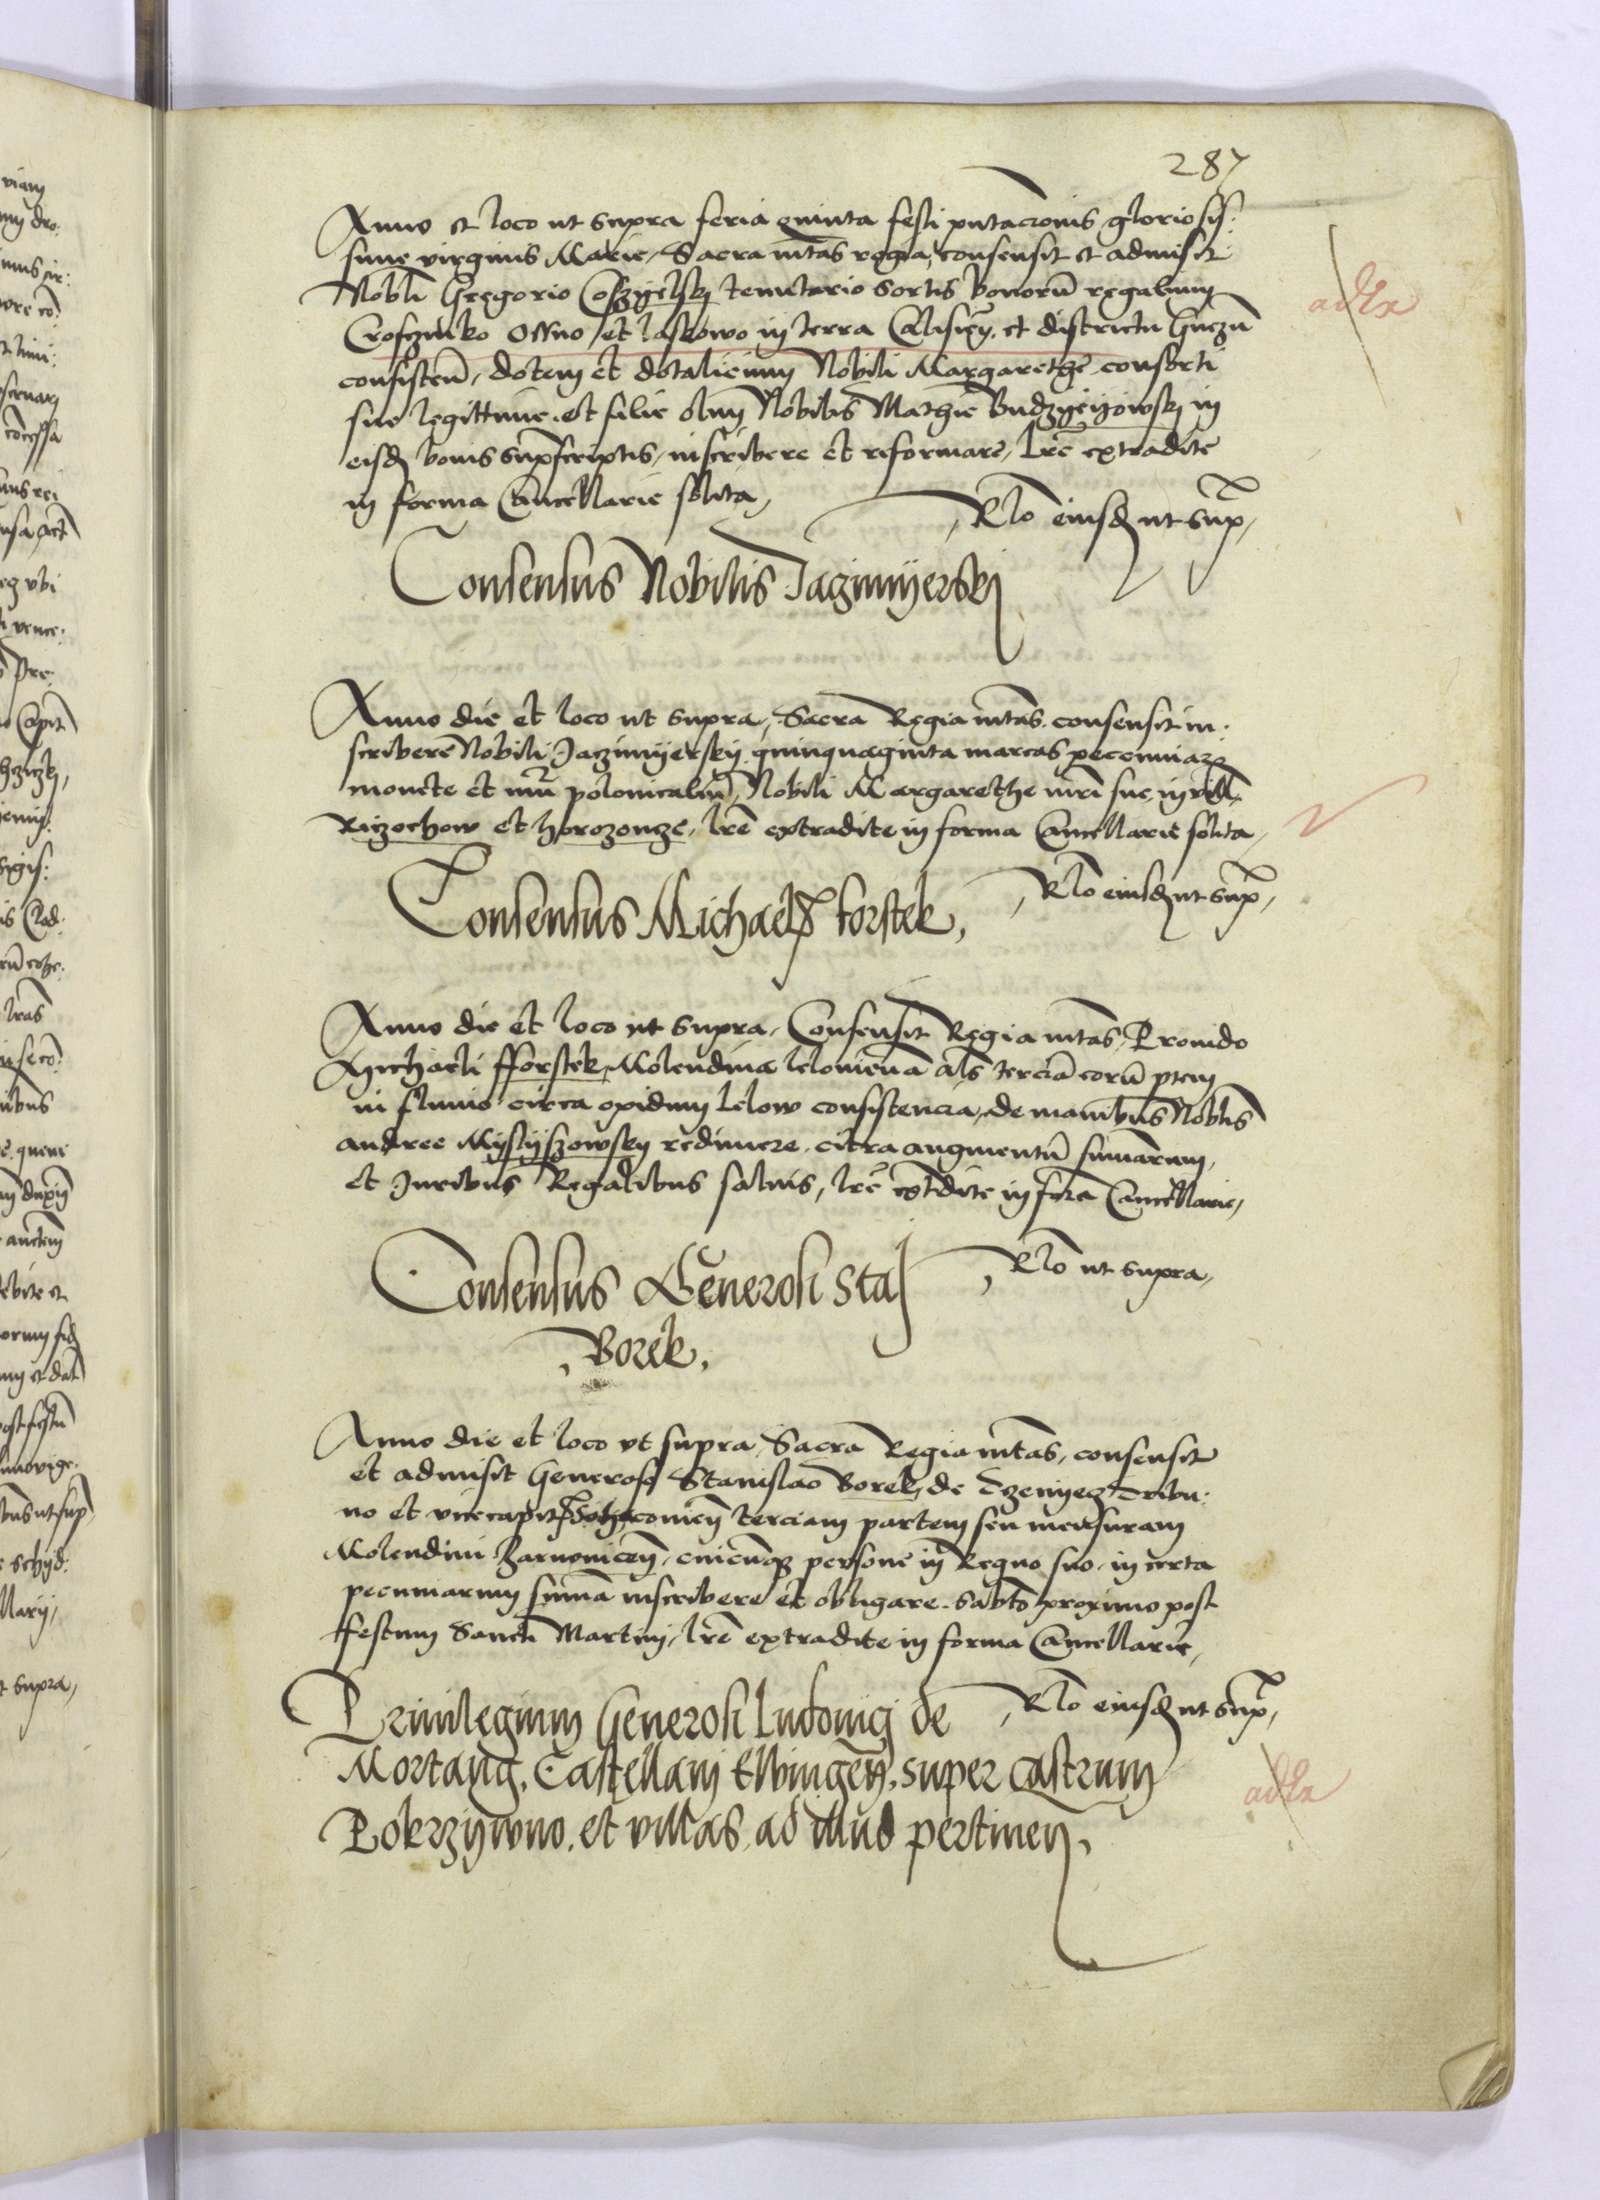 287
Anno et loco ut supra feria quinta festi pntacionis gloriosis:
sime virginis Marie, Sacra mtas regia, consensit et admisit
Nobli Gregorio tenutario sortis bonorũ regalium
Osino et laskowo in terra Calisieñ. et districtu Gnezñ
consisteñ, dotem et dotalicium Nobili Margarethe consorti
sue legittime. et filie olim Nobilis Mathie in
eisd bonis suprascriptis, inscribere et reformare, lre extradite
in forma Cancellarie solita,
Rlo eiusd ut sup,
Consensus Nobilis Jaczimijersky
Anno die et loco ut supra, Sacra Regia mtas. consensit in:
scribere Nobili Jaczimijersky. quinquaginta marcas pecuniarũ
monete et nũi polonicaliũ, Nobili Margarethe mri sue, in vill
Riczochow et horozonze, lre extradite in forma Cancellarie solita,
Rlo eiusd ut sup,
Consensus Michaelis forstek,
Anno die et loco ut supra, Consensit Regia mtas, Provido
Michaeli fforstek, Molendina leloviena als terciã eorũ ptem
in fluvio circa opidum lelow consistencia, de manibus Noblis
andree Myslijszowsky redimere. citra augmentũ summarum,
et Juribus Regalibus salvis, lre extdite in forã Cancellarie,
Rlo ut supra,
Consensus Generosi Sta
Borek,
Anno die et loco ut supra, Sacra Regia mtas, consensit
et admisit Generoso Stanislao Borek, de Tribu:
no et vicecapit terciam partem seu mensuram
Molendini Zarnoviceñ, cuicũq persone in Regno suo, in certa
pecuniarum summa inscribere et obligare. Sabto proximo post
ffestum Sancti Martini, lre extradite in forma Cancellarie,
Rlo eiusd ut sup,
Privilegium Generosi Ludovici de
Mortang. Castellani Elbingeñ, super castrum
Pokrzywno. et villas. ad illud pertineñ,